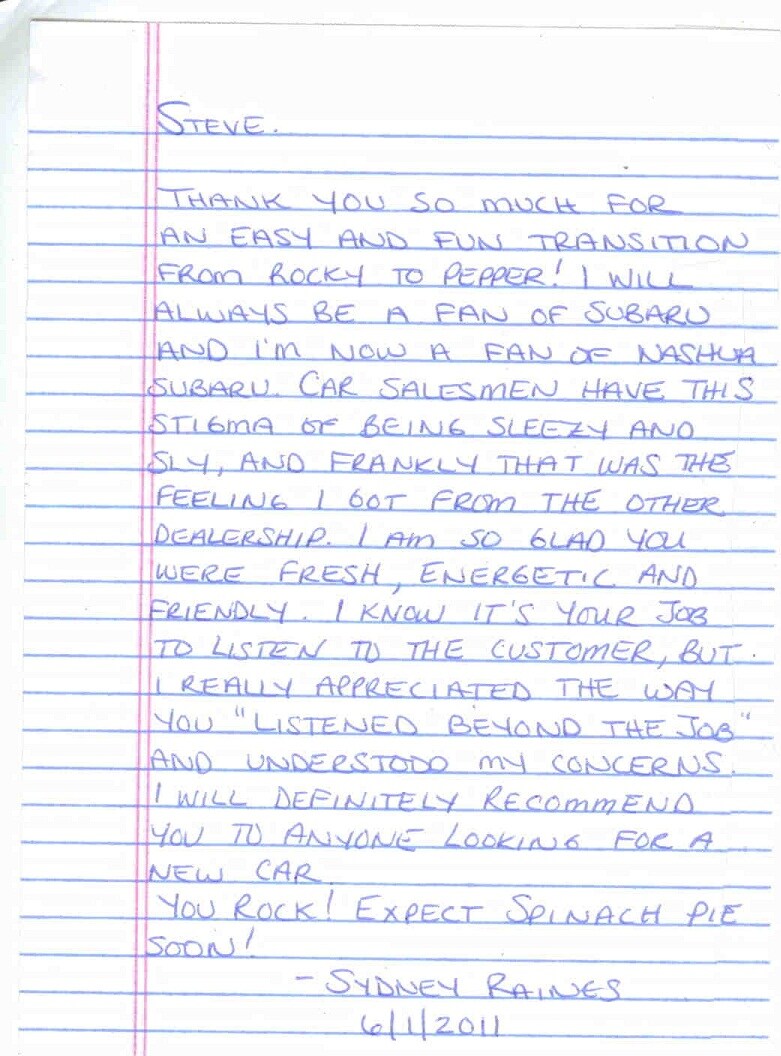 STEVE.
THANK YOU SO MUCH FOR
AN EASY AND FUN TRANSITION
FROM ROCKY TO PEPPER! I WILL
ALWAYS BE A FAN OF SUBARU
AND I'M NOW A FAN OF NASHUA
SUBARU. CAR SALESMEN HAVE THIS
STIGMA OF BEING SLEEZY AND
SLY, AND FRANKLY THAT WAS THE
FEELING I GOT FROM THE OTHER
DEALERSHIP. I AM SO GLAD YOU
WERE FRESH, ENERGETIC AND
FRIENDLY. I KNOW IT'S YOUR JOB
TO LISTEN TO THE CUSTOMER, BUT
I REALLY APPRECIATED THE WAY
YOU "LISTENED BEYOND THE JOB"
AND UNDERSTOOD MY CONCERNS.
I WILL DEFINITELY RECOMMEND
YOU TO ANYONE LOOKING FOR A
NEW CAR.
YOU ROCK! EXPECT SPINACH PIE
SOON!
- SYDNEY RAINES
6/1/2011